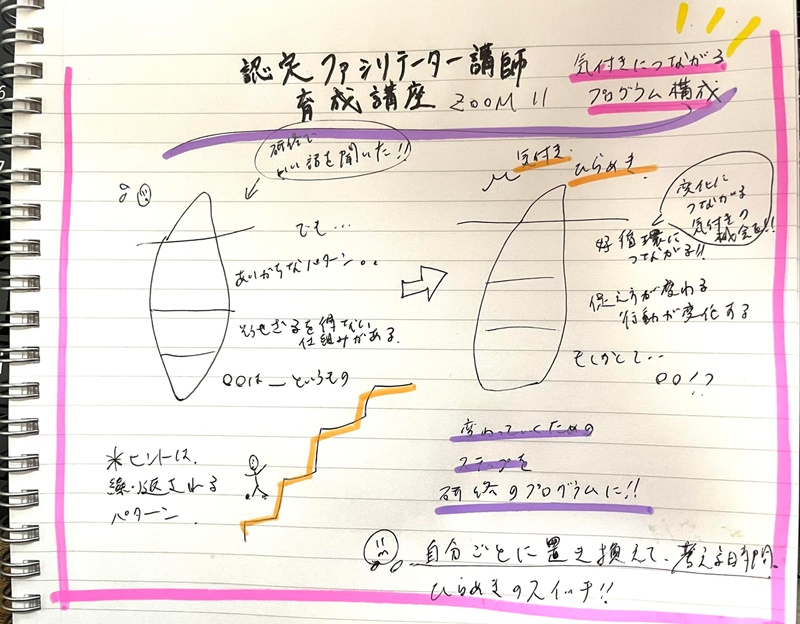 認定ファシリテーター講師
育成講座 ZOOM 11
気付きにつながる
プログラム構成
研修で
いい話を聞いた!!
でも…
ありがちなパターン..
そうせざるを得ない
仕組みがある.
○○は__というもの
気付き
ひらめき
変化に
つながる
気付きの
機会を!!
好循環に
つながる!!
伝え方が変わる
行動が変化する
もしかして…
○○!?
※ヒントは、
繰り返される
パターン.
変わっていくための
ステップを
研修のプログラムに!!
自分ごとに置き換えて、考える時間.
ひらめきのスイッチ!!